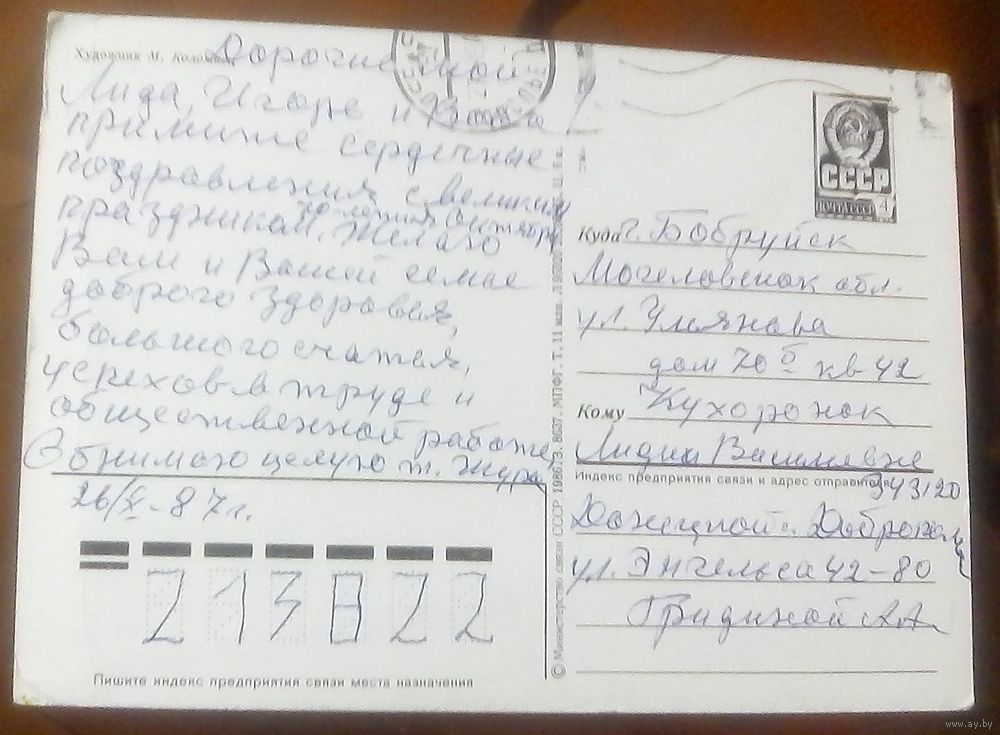 Художник М.
Дорогие мои
Лида, Игорь и
примите сердечные
поздравления с великим
70-летия Октября
праздником. Желаю
Вам и Вашей семье
доброго здоровья,
большого счастья,
успехов в труде и
общественной работе
Обнимаю целую т. Шура
26/X-87г.
213822
Пишите индекс предприятия связи места назначения
© Министерство связи СССР. 1986. З. 8637. МПФГ. Т. 11 млн.
СССР
ПОЧТА СССР 4
Куда г. Бобруйск
Могилевской обл.
ул. Ульянова
дом 70 б кв 42
Кому Кухоронок
Лидии Васильевне
Индекс предприятия связи и адрес отправителя
343120
Донецкой
ул. Энгельса 42-80
Гридиной А А
www.ay.by